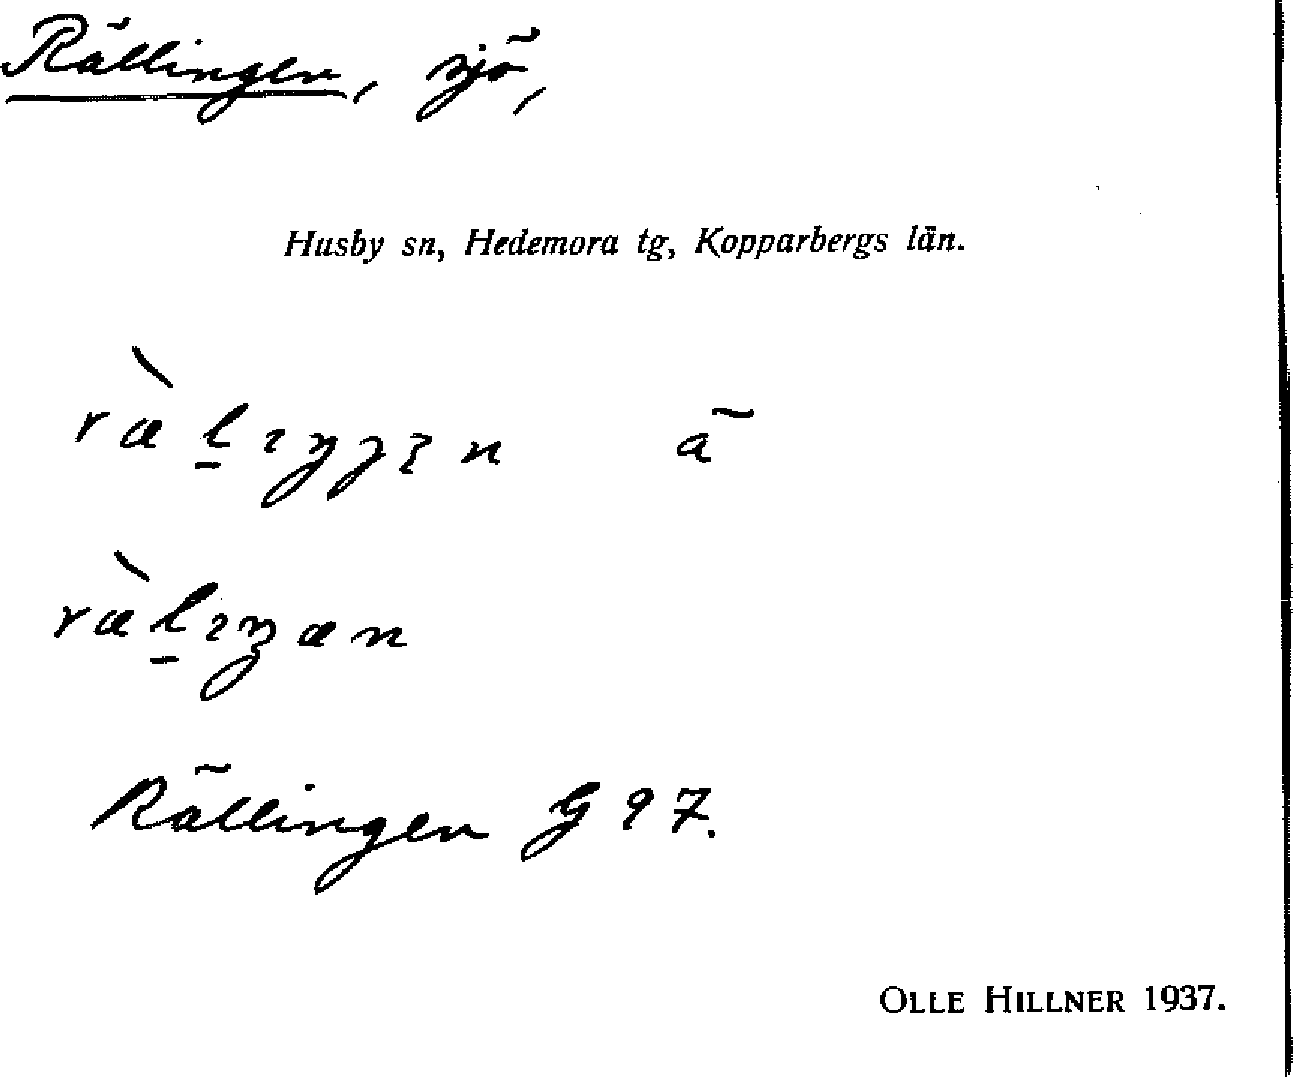 Rällingen, sjö,
Husby sn, Hedemora tg, Kopparbergs län.
Rällingen G 97.
OLLE HILLNER 1937.